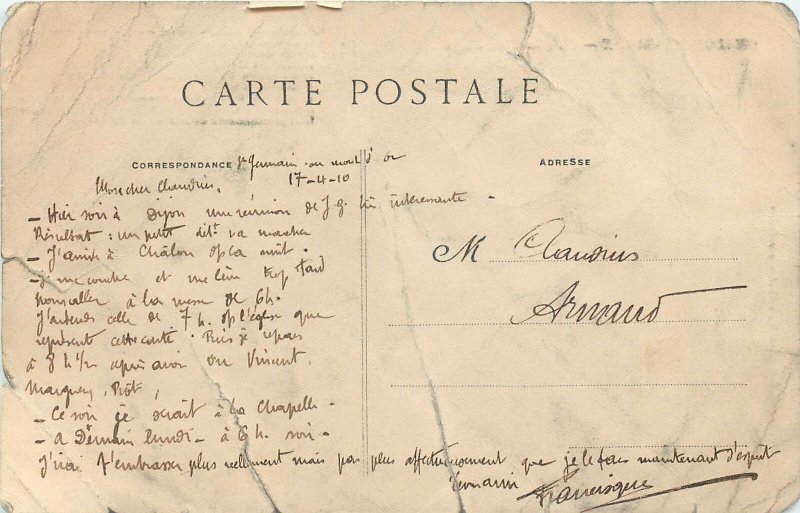 CARTE POSTALE
CORRESPONDANCE St Germain au mont d'or
17-4-10
ADRESSE
Mon cher Claudius,
- Hier soir à Dijon une réunion de J.G. très intéressante -
Résultat : un petit va marcher
- J'arrive à Châlon la nuit -
- Je me couche et me lève trop tard
pour aller à la messe de 6h.
J'attends celle de 7h. l'église que
représente cette carte. Puis je repars
à 8h 1/2 après avoir vu Vincent,
- Ce soir je serait à la Chapelle -
- à Demain lundi - à 6h. soir -
J'irai t'embrasser plus réellement mais pas plus affectueusement que je le fais maintenant d'esprit
M Claudius
Arnaud